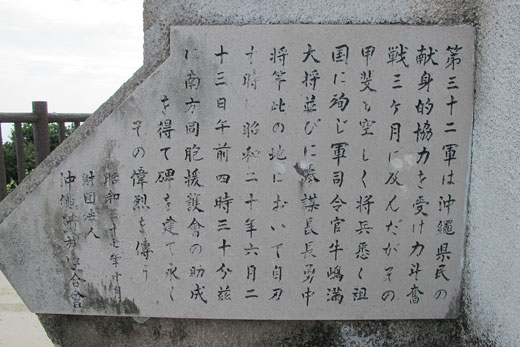 第三十二軍は沖縄県民の
献身的協力を受け力斗奮
戦三ヶ月に及んだがその
甲斐も空しく将兵悉く祖
国に殉じ軍司令官牛島満
大将並びに参謀長長勇中
将等此の地において自刃
す時に昭和二十年六月二
十三日午前四時三十分茲
に南方同胞援護會の助成
を得て碑を建て永く
その偉烈を傳う
昭和三十七年十月
財団法人
沖縄遺族連合會